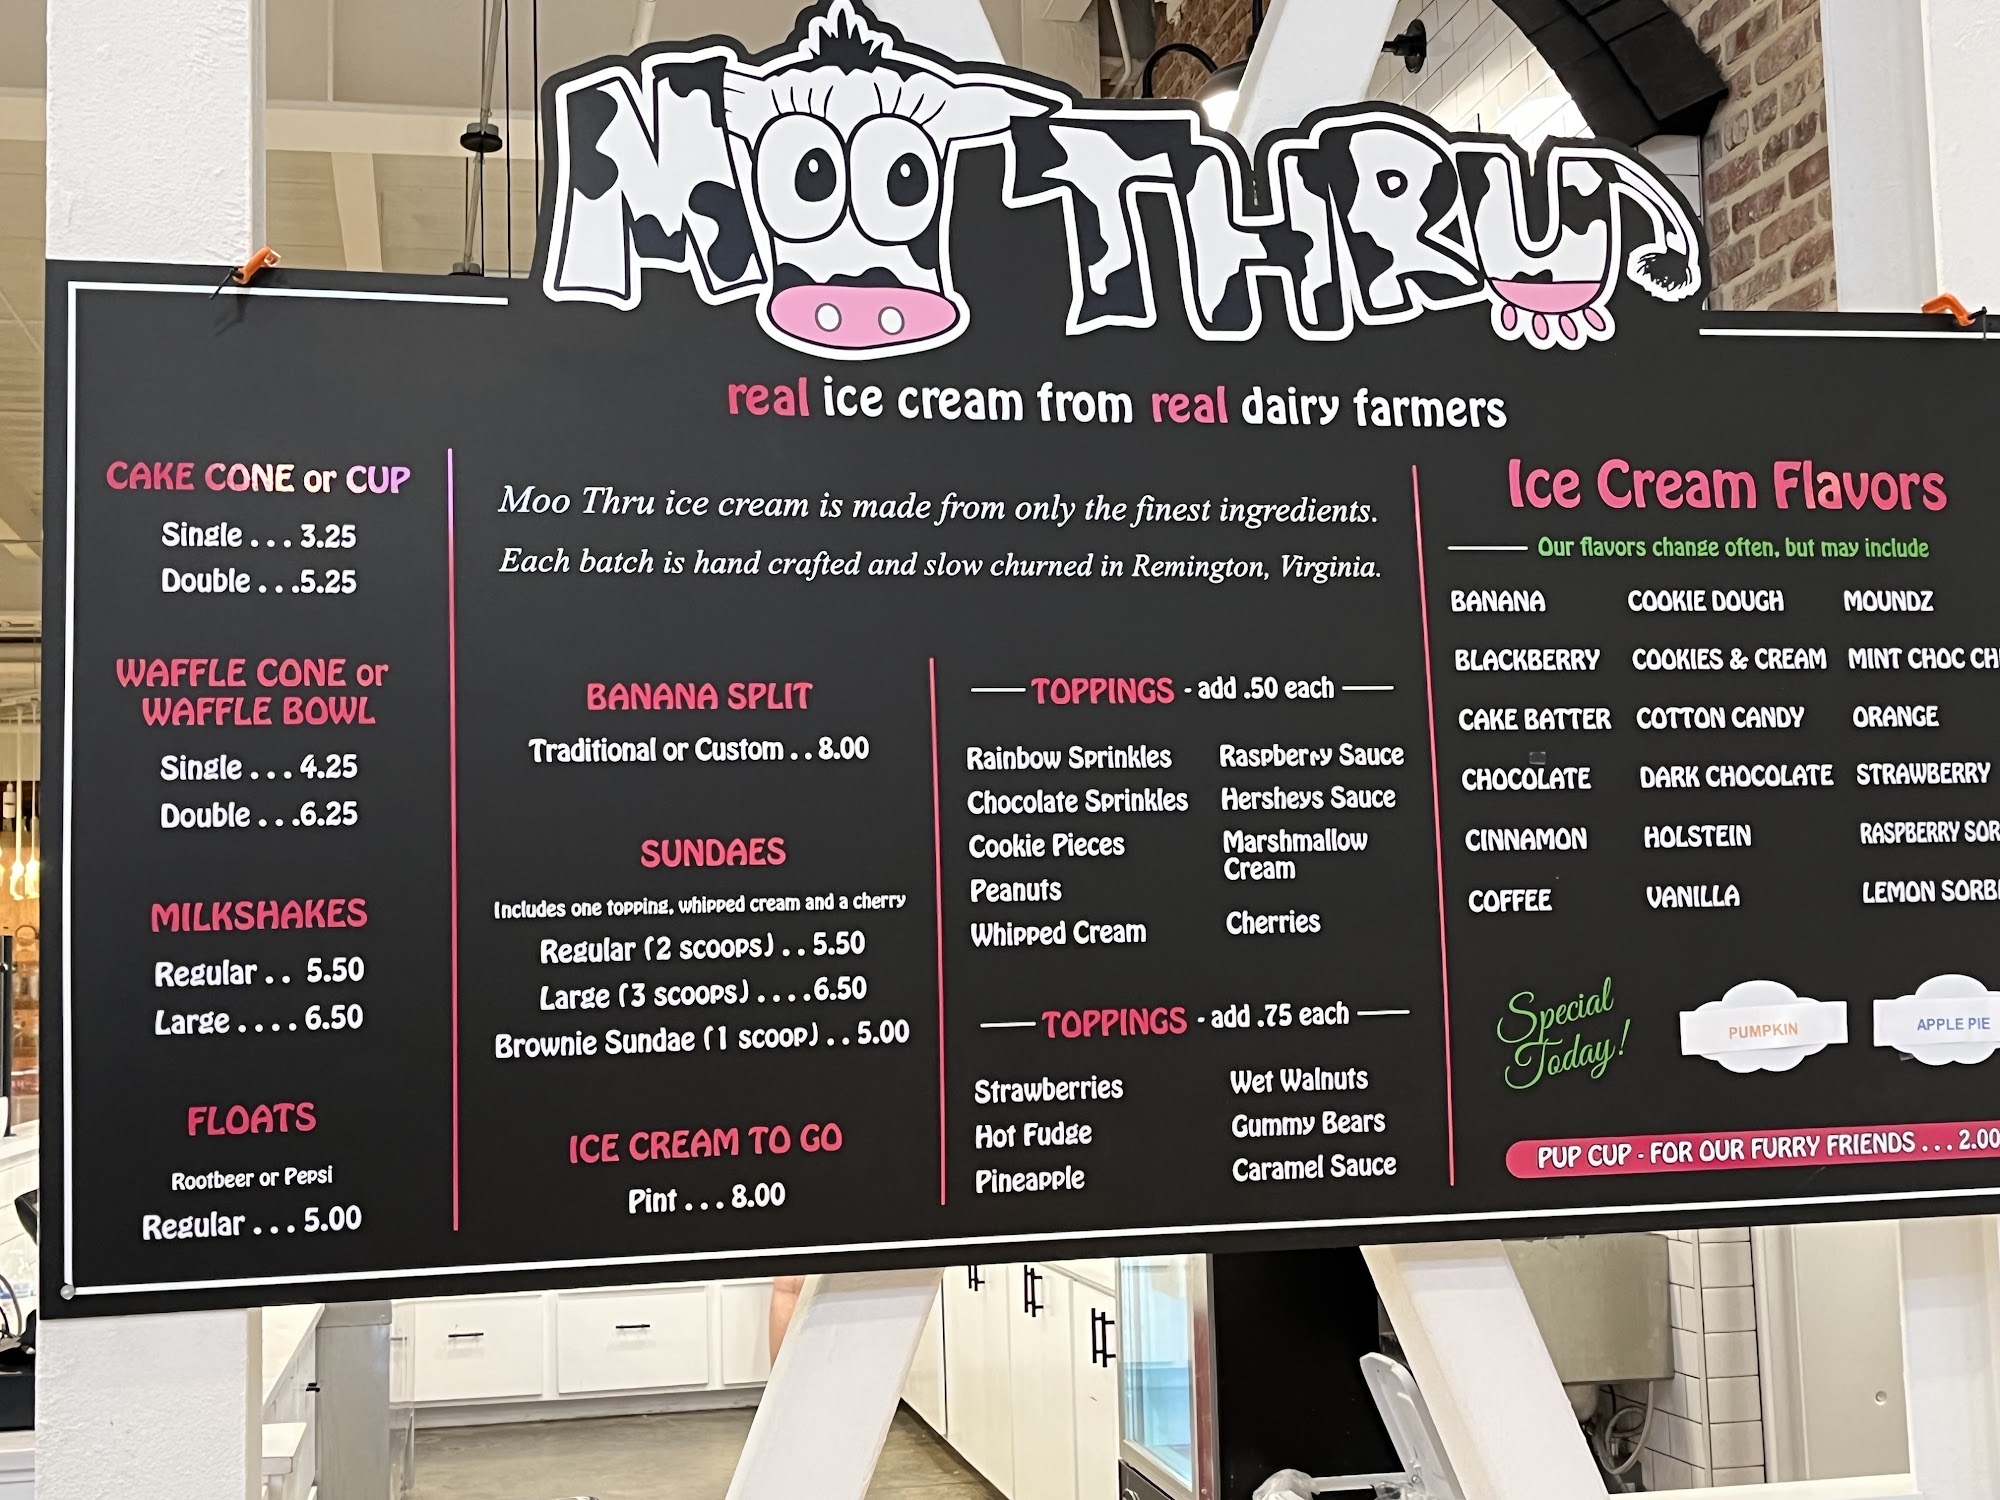 MOO THRU
real ice cream from real dairy farmers
CAKE CONE or CUP
Single . . . 3.25
Double . . .5.25
WAFFLE CONE or
WAFFLE BOWL
Single . . . 4.25
Double . . .6.25
MILKSHAKES
Regular . . 5.50
Large . . . . 6.50
FLOATS
Rootbeer or Pepsi
Regular . . . 5.00
Moo Thru ice cream is made from only the finest ingredients.
Each batch is hand crafted and slow churned in Remington, Virginia.
BANANA SPLIT
Traditional or Custom . . 8.00
SUNDAES
Includes one topping, whipped cream and a cherry
Regular (2 scoops) . . 5.50
Large (3 scoops) . . . .6.50
Brownie Sundae (1 scoop) . . 5.00
ICE CREAM TO GO
Pint . . . 8.00
TOPPINGS - add .50 each
Rainbow Sprinkles
Chocolate Sprinkles
Cookie Pieces
Peanuts
Whipped Cream
Raspberry Sauce
Hersheys Sauce
Marshmallow
Cream
Cherries
TOPPINGS - add .75 each
Strawberries
Hot Fudge
Pineapple
Wet Walnuts
Gummy Bears
Caramel Sauce
Ice Cream Flavors
Our flavors change often, but may include
BANANA
BLACKBERRY
CAKE BATTER
CHOCOLATE
CINNAMON
COFFEE
COOKIE DOUGH
COOKIES & CREAM
COTTON CANDY
DARK CHOCOLATE
HOLSTEIN
VANILLA
MOUNDZ
MINT CHOC
ORANGE
STRAWBERRY
RASPBERRY
LEMON
Special
Today!
PUMPKIN
APPLE PIE
PUP CUP - FOR OUR FURRY FRIENDS . . . 2.00